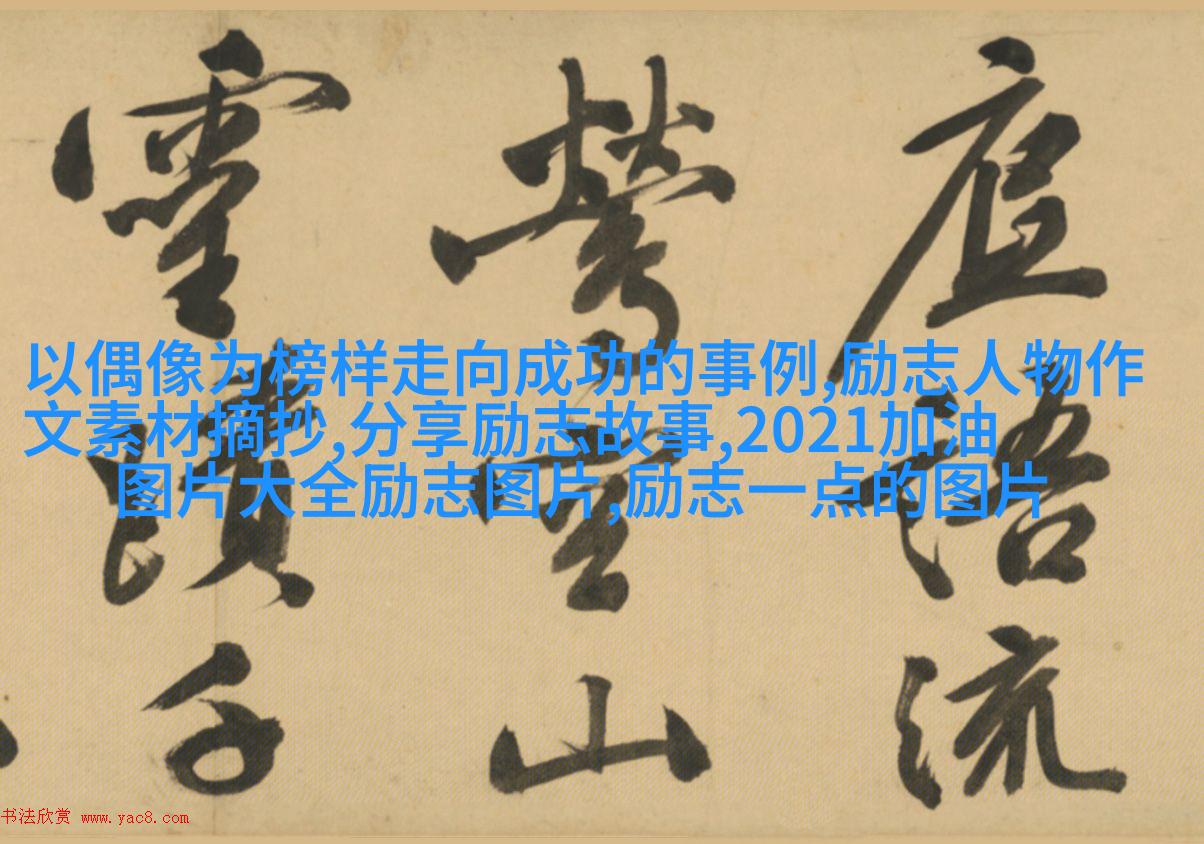 語流
鶯空山
靈蹟千
以偶像为榜样走向成功的事例,励志人物作
文素材摘抄,分享励志故事,2021加油
图片大全励志图片,励志一点的图片
书法欣赏 www.yac8.com